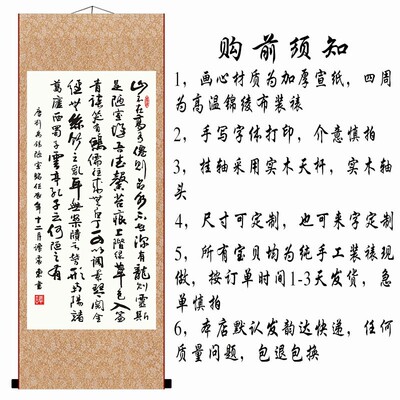 购前须知
1，画心材质为加厚宣纸，四周
为高温锦绫布装裱
2，手写字体打印，介意慎拍
3，挂轴采用实木天杆，实木轴
头
4，尺寸可定制，也可来字定制
5，所有宝贝均为纯手工装裱现
做，按订单时间1-3天发货，急
单慎拍
6，本店默认发韵达快递，任何
质量问题，包退包换
山不在高有僊則名水不在深有龍則靈斯
是陋室惟吾德馨苔痕上階緑草色入簾
青談笑有鴻儒往來無白丁可以調素琴閱金
經無絲竹之亂耳無案牘之勞形南陽諸
葛廬西蜀子雲亭孔子云何陋之有
唐劉禹錫陋室銘 年十二月 書